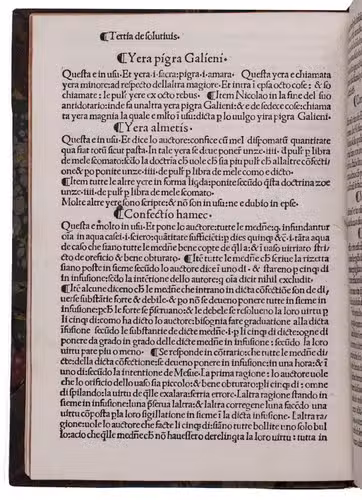 ¶Tertia de solutiuis.
¶Yera pigra Galieni.
Questa e in usu. Et yera. i. sacra: pigra. i. amara. Questa yera e chiamata
yera minore: ad respecto dellaltra magiore. Et intra i epsa octo cose: & so
chiamate: le pulf yere ex octo rebus. ¶Item Nicolao in la fine del suo
antidotario: inde fa unaltra yera pigra Galieni: & e de sedece cose: chiamata
yera magnia la quale e molto i usu: dicta p lo uulgo yira pigra Galieni.
¶Yera almetis.
Questa e in usu. Et dice lo auctore: confice cu mel dispomati quantitate
qua fiat torũ sicut pasta. In tale yera se deue ponere unze. iiii. de pulf p libra
de mele scomato: secõdo la doctria cõmũe
tione & po ponite unze. iiii. de pulf p libra de mele como e dicto.
¶Item tutte le altre yere in forma liqda: ponite secõdo qsta doctrina zoe
unze. iiii. de pulf p libra de mele scomato.
Molte altre yere sono scripte: & nõ son in usu: ne e dubio in epse.
¶Confectio hamec.
Questa e molto in usu. Et pone lo auctore: tutte le medine infundantur
in aqua casei. i. sero: quãtitate sufficiẽti p dies quinq: & i. tãta aqua
de caso che siano tutte le medine bene copte de qlla: & i uaso uitriato stricto
de orificio & bene obturato. ¶Et tutte le medine che scriue la rizetta
siano poste in sieme secõdo lo auctore dice i uno di: & stareno p cinq di
in infusione: secõdo la intentione dello autore: q oia dicit nihil excludit.
¶Et alcune dicono che le medine che intrano in dicta cõfectiõe son de di-
uerse substãtie forte & debile & po nõ se deueno ponere tutte in sieme in
infusione: pche le forte se psteriano: & le debile resolueno la loro uirtu p
li cinq di: como ha dicto lo auctore: bisognia fare graduatione alla dicta
ifusione secõdo le substantie de dicte medine. i p li cinq di dicte: ogne di
ponere da grado in grado delle dicte medine in infusione: secõdo la loro
uirtu pare piu o meno. ¶Se responde in cõtrario: che tutte le medine di-
cte della dicta cõfectione se deueno ponere in infusione: in una hora: & i
uno di: secõdo la intentione de Mesue. La prima ragione: lo auctore uole
che lo orificio dello uaso sia piccolo: & bene obturato: pli cinq di: omne
di spilando: la uirtu de qlle exalara: seria errore. Laltra ragione stando in
sieme in infusione: luna pseua laltra: & laltra corregene luna facẽdo una
uirtu cõposta p la loro sigillatione in sieme i la dicta infusione. Laltra ra-
gione: uole lo auctore che facte li cinq di: siano tutte bollite uno solo bul-
lo: acio che qlle medine cb nõ hauessero derelinqta la loro uirtu: tutta in